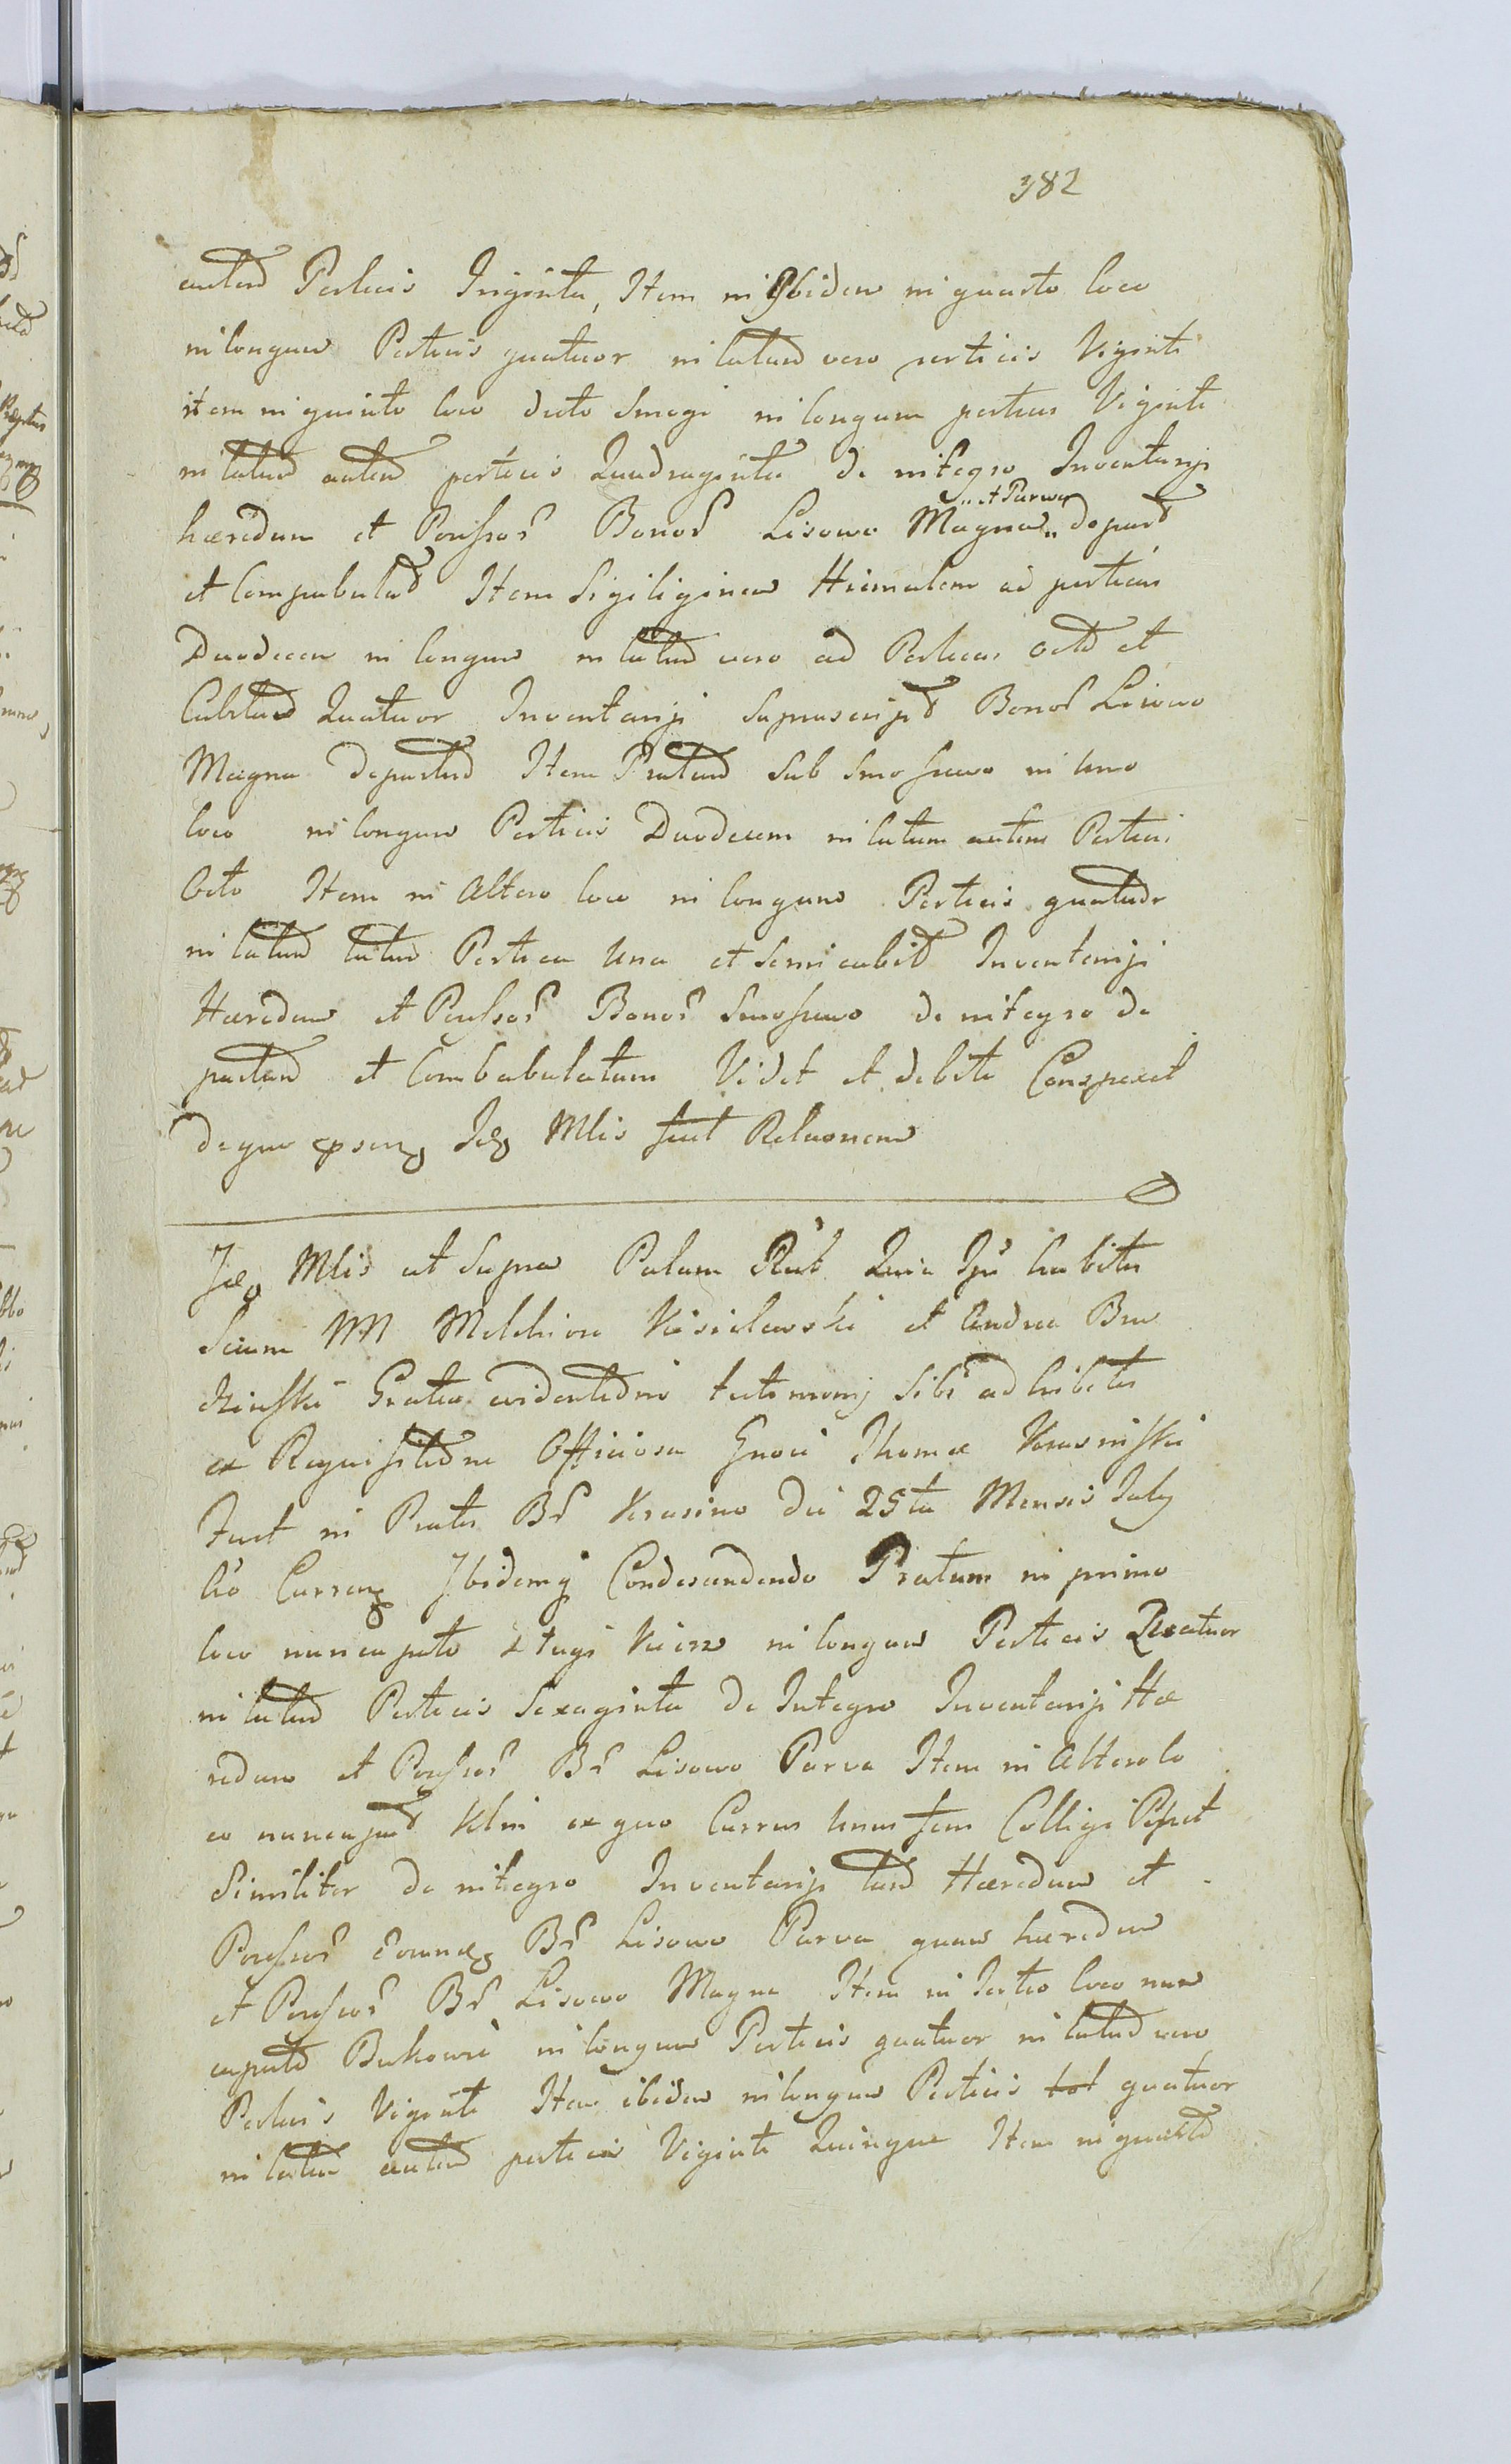 382
autem Perticis Triginta, Item in Ibidem in quarto loco
in longum Perticis quatuor in latum vero perticis Viginti
item in quinto loco dicto Smugi in longum perticas Viginti
in latum autem perticis Quadraginta de integro Inventarij
hæredum et Possessor Bonor Lisowo Magna et Parwa depast
et Compabulat Item Sigiliginem Hiemalem ad perticas
Duodecem in longum in latum vero ad Perticas octo et
Cubitum Quatuor Inventarij Suprascript Bonor Lisowo
Magna depastum Item Pratum Sub in uno
loco in longum Perticis Duodecem in latum autem Perticis
Octo Item in Altero loco in longum Perticis quatuor
in latum latum Pertica Una et Semicubit Inventarij
Hæredum et Possessor Bonor de integro de
pastum et Combabulatum Vidit et debite Conspexit
deque Idq Mlis fecit Relaonem

Idq Mlis ut Supra Palam Rec Quia Ipse habitis
Secum NN Melchiore Wasilewski et Andrea Bru
dzinski Gratia evidentioris testimonij Sibi adhibitis
ex Requisitione Officiosa Gnosi Thomæ Krasinski
Fuit in Pratis Br Krasino die 25ta Mensis July
Ao Curren Ibidemq Condescendendo Pratum in primo
loco nuncupato Ługi in longum Perticis Quatuor
in latum Perticis Sexaginta de Integro Inventarij Hæ
redum et Possessor Br Lisowo Parva Item in Altero lo
co nuncupat Klin ex quo Currus Unus feni Colligi Posset
Similiter de integro Inventarij tam Hæredum et
Possessor Br Lisowo Parva quam hæredum
et Possessor Br Lisowo Magna Item in Tertio loco nun
cupato Bukowie in longum Perticis quatuor in latum vero
Perticis Viginti Item ibidem in longum Perticis tot quatuor
in latum autem perticis Viginti Quinque Item in quarto